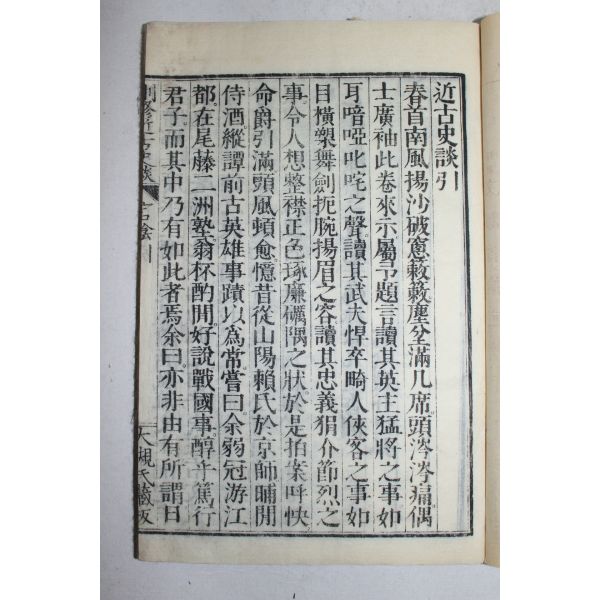 近古史談引
春首南風揚沙破窻簌簌塵坌滿几席頭涔涔痛偶
士廣袖此卷來示屬予題言讀其英主猛將之事如
耳喑啞叱咤之聲讀其武夫悍卒畸人俠客之事如
目橫槊舞劍扼腕揚眉之容讀其忠義狷介節烈之
事令人想整襟正色琢廉礪隅之狀於是拍案呼快
命爵引滿頭風頓愈憶昔從山陽賴氏於京師晡閒
侍酒縱譚前古英雄事蹟以為常嘗曰余弱冠游江
都在尾藤二洲塾翁杯酌閒好說戰國事醇乎篤行
君子而其中乃有如此者焉余曰亦非由有所謂日
刪修近古史談
大槻氏藏板